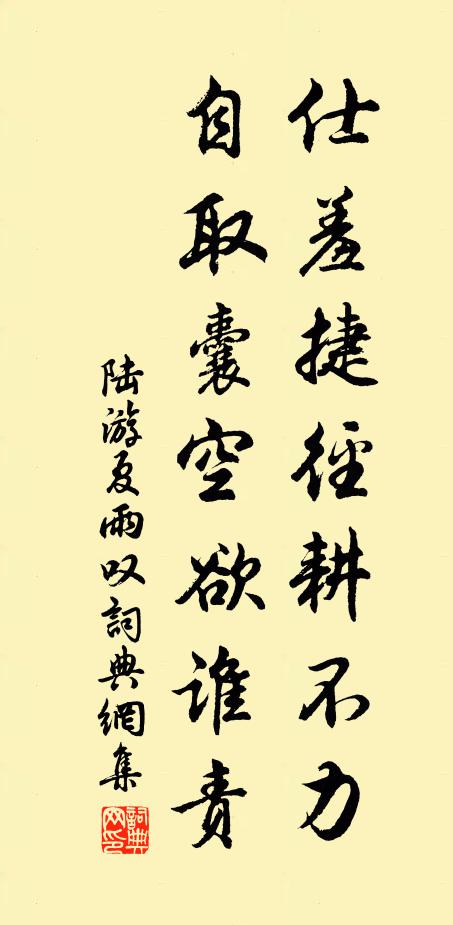 仕羞捷徑耕不力
自取囊空欲谁责
陆游夏雨叹詞典網集
詞典网印